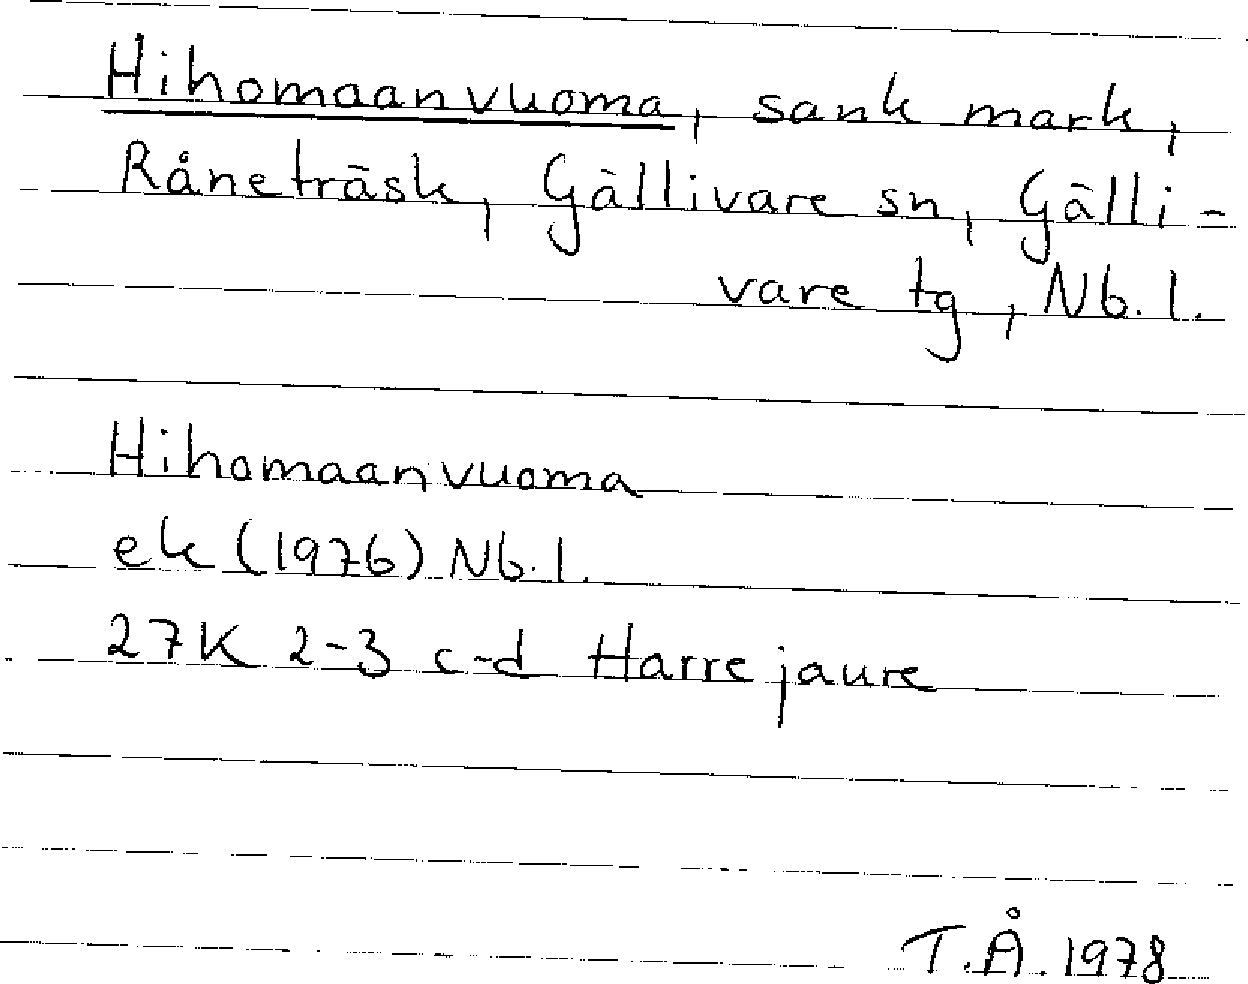 Hihomaanvuoma, sank mark,
Råneträsk, Gällivare sn, Gälli-
vare tg, Nb. l.
Hihomaanvuoma
ek (1976) Nb. l.
27K 2-3 c-d Harrejaure
T.Å. 1978